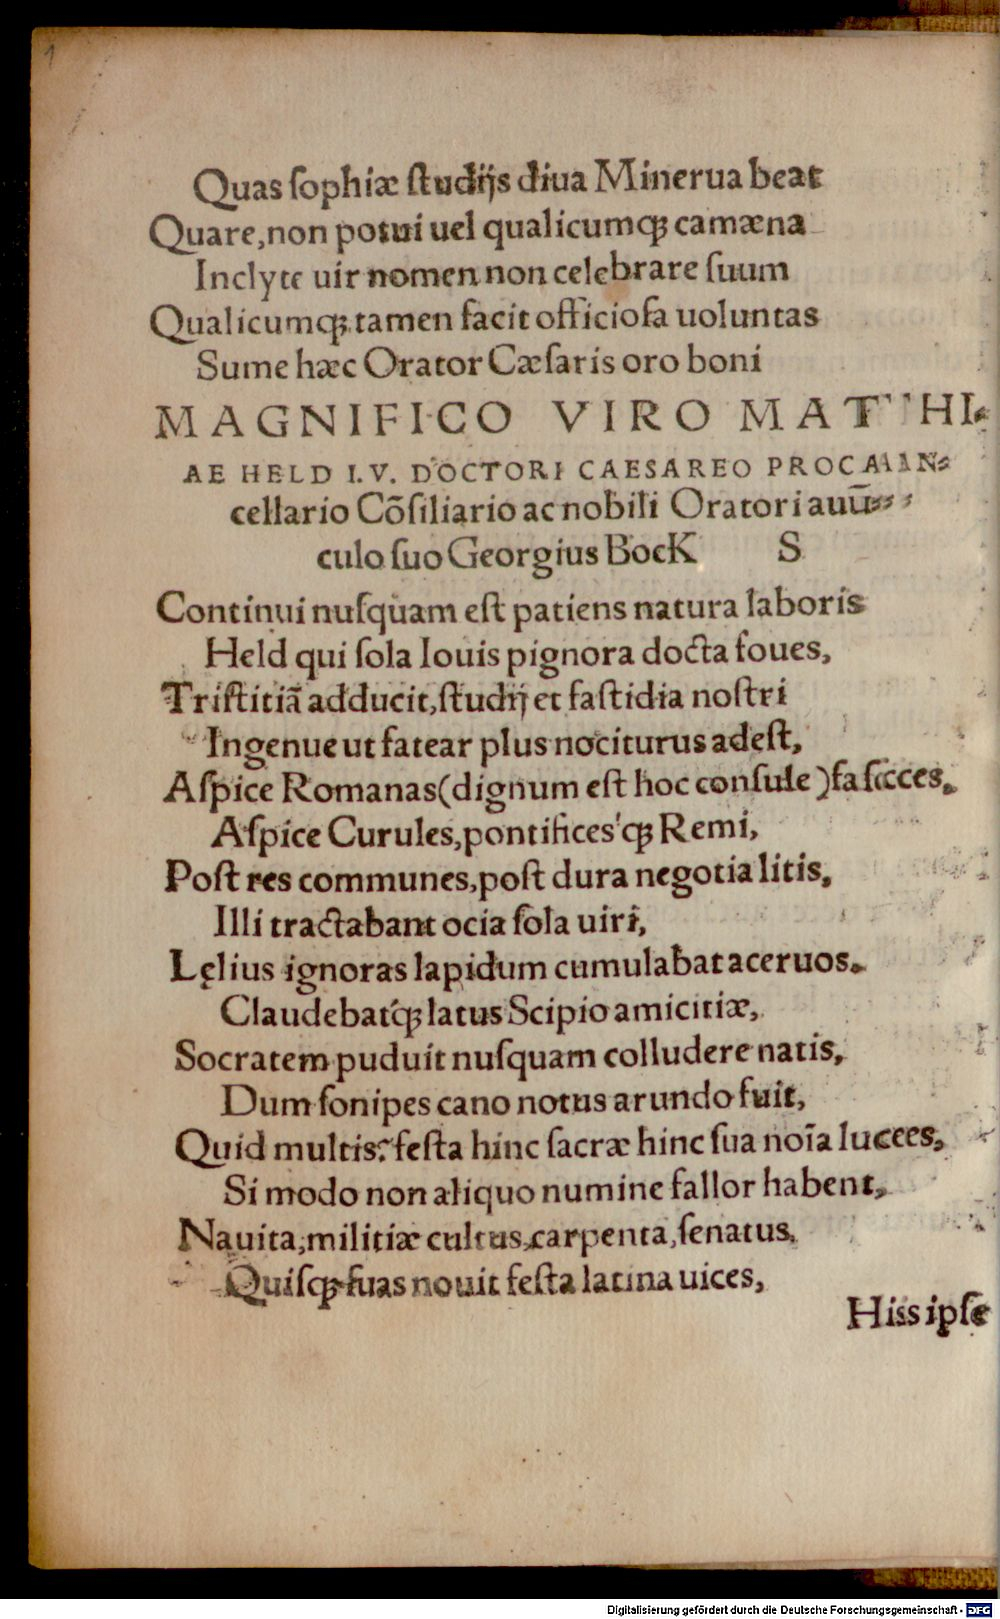 1
Quas ſophiæ ſtudijs diua Minerua beat
Quare,non potui uel qualicumqꝫ camæna
Inclyte uir nomen non celebrare ſuum
Qualicumqꝫ tamen facit officioſa uoluntas
Sume hæc Orator Cæſaris oro boni
MAGNIFICO VIRO MATTHI⸗
AE HELD I.V. DOCTORI CAESAREO PROCAN⸗
cellario Cõſiliario ac nobili Oratori auū⸗
culo ſuo Georgius BocK S
Continui nuſquam eſt patiens natura laboris
Held qui ſola Iouis pignora docta foues,
Triſtitiã adducit,ſtudij et faſtidia noſtri
Ingenue ut fatear plus nociturus adeſt,
Aſpice Romanas(dignum eſt hoc conſule)faſcces,
Aſpice Curules,pontifices'qꝫ Remi,
Poſt res communes,poſt dura negotia litis,
Illi tractabant ocia ſola uiri,
Lęlius ignoras lapidum cumulabat aceruos,
Claudebat'qꝫ latus Scipio amicitiæ,
Socratem puduit nuſquam colludere natis,
Dum ſonipes cano notus arundo fuit,
Quid multis? feſta hinc ſacræ hinc ſua noĩa lucees,
Si modo non aliquo numine fallor habent,
Nauita,militiæ cultus,carpenta,ſenatus,
Quiſqꝫ ſuas nouit feſta latina uices,
Hiss ipſe
Digitalisierung gefördert durch die Deutsche Forschungsgemeinschaft - DFG